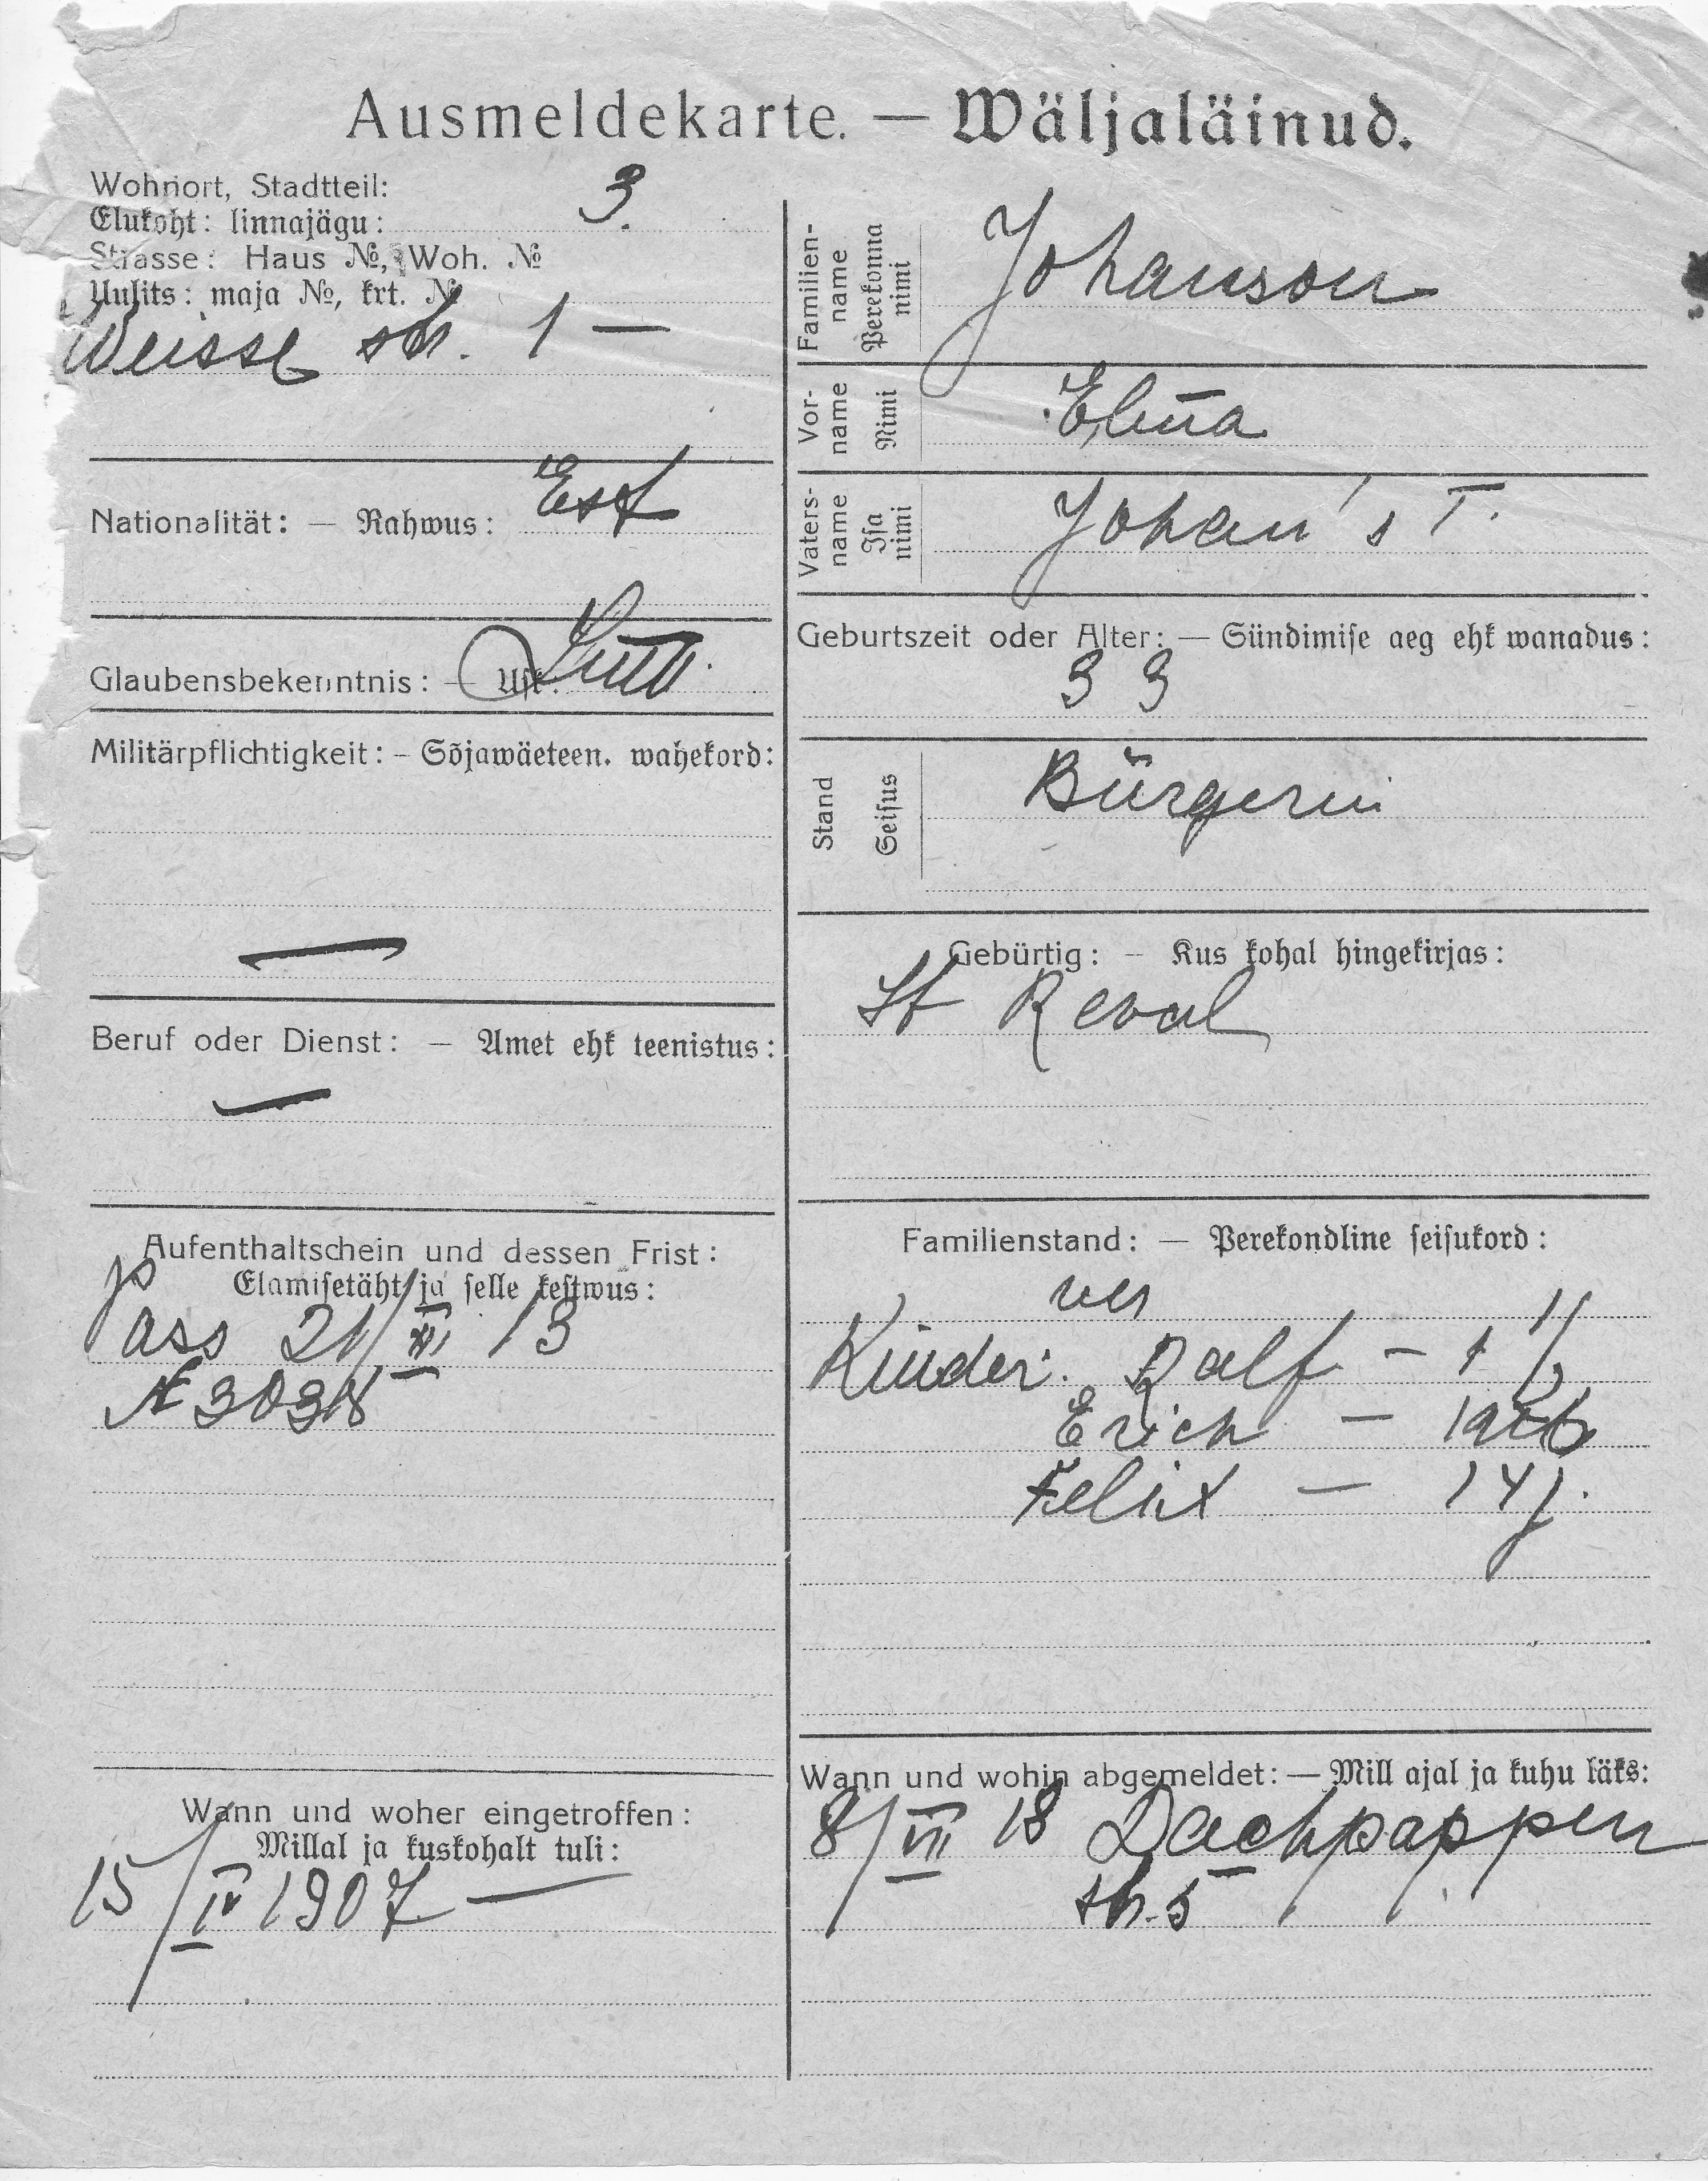 Ausmeldekarte. — Wäljaläinud.
Wohnort, Stadtteil:
Elukoht: linnajägu: 3.
Strasse: Haus №, Woh. №
Uulits: maja №, krt. №
Weisse str. 1 —
Nationalität: — Rahwus: Est
Glaubensbekenntnis: — Usk: Luth.
Militärpflichtigkeit: – Sõjawäeteen. wahekord:
—
Beruf oder Dienst: — Amet ehk teenistus:
—
Aufenthaltschein und dessen Frist:
Elamisetäht ja selle kestwus:
Pass 21/XII 13
№
Wann und woher eingetroffen:
Millal ja kuskohalt tuli:
15/IV 1907 —
Familien-
name
Perekonna
nimi
Johanson
Vor-
name
Nimi
Vaters-
name
Isa
nimi
Johan's T.
Geburtszeit oder Alter: — Sündimise aeg ehk wanadus:
33
Stand
Seisus
Bürgerin
Gebürtig: — Kus kohal hingekirjas:
St Reval
Familienstand: — Perekondline seisukord:
Kinder: Ralf —
Erich —
Felix — 14 j.
Wann und wohin abgemeldet: — Mill ajal ja kuhu läks:
8/VII 18 Dachpappen
str. 5